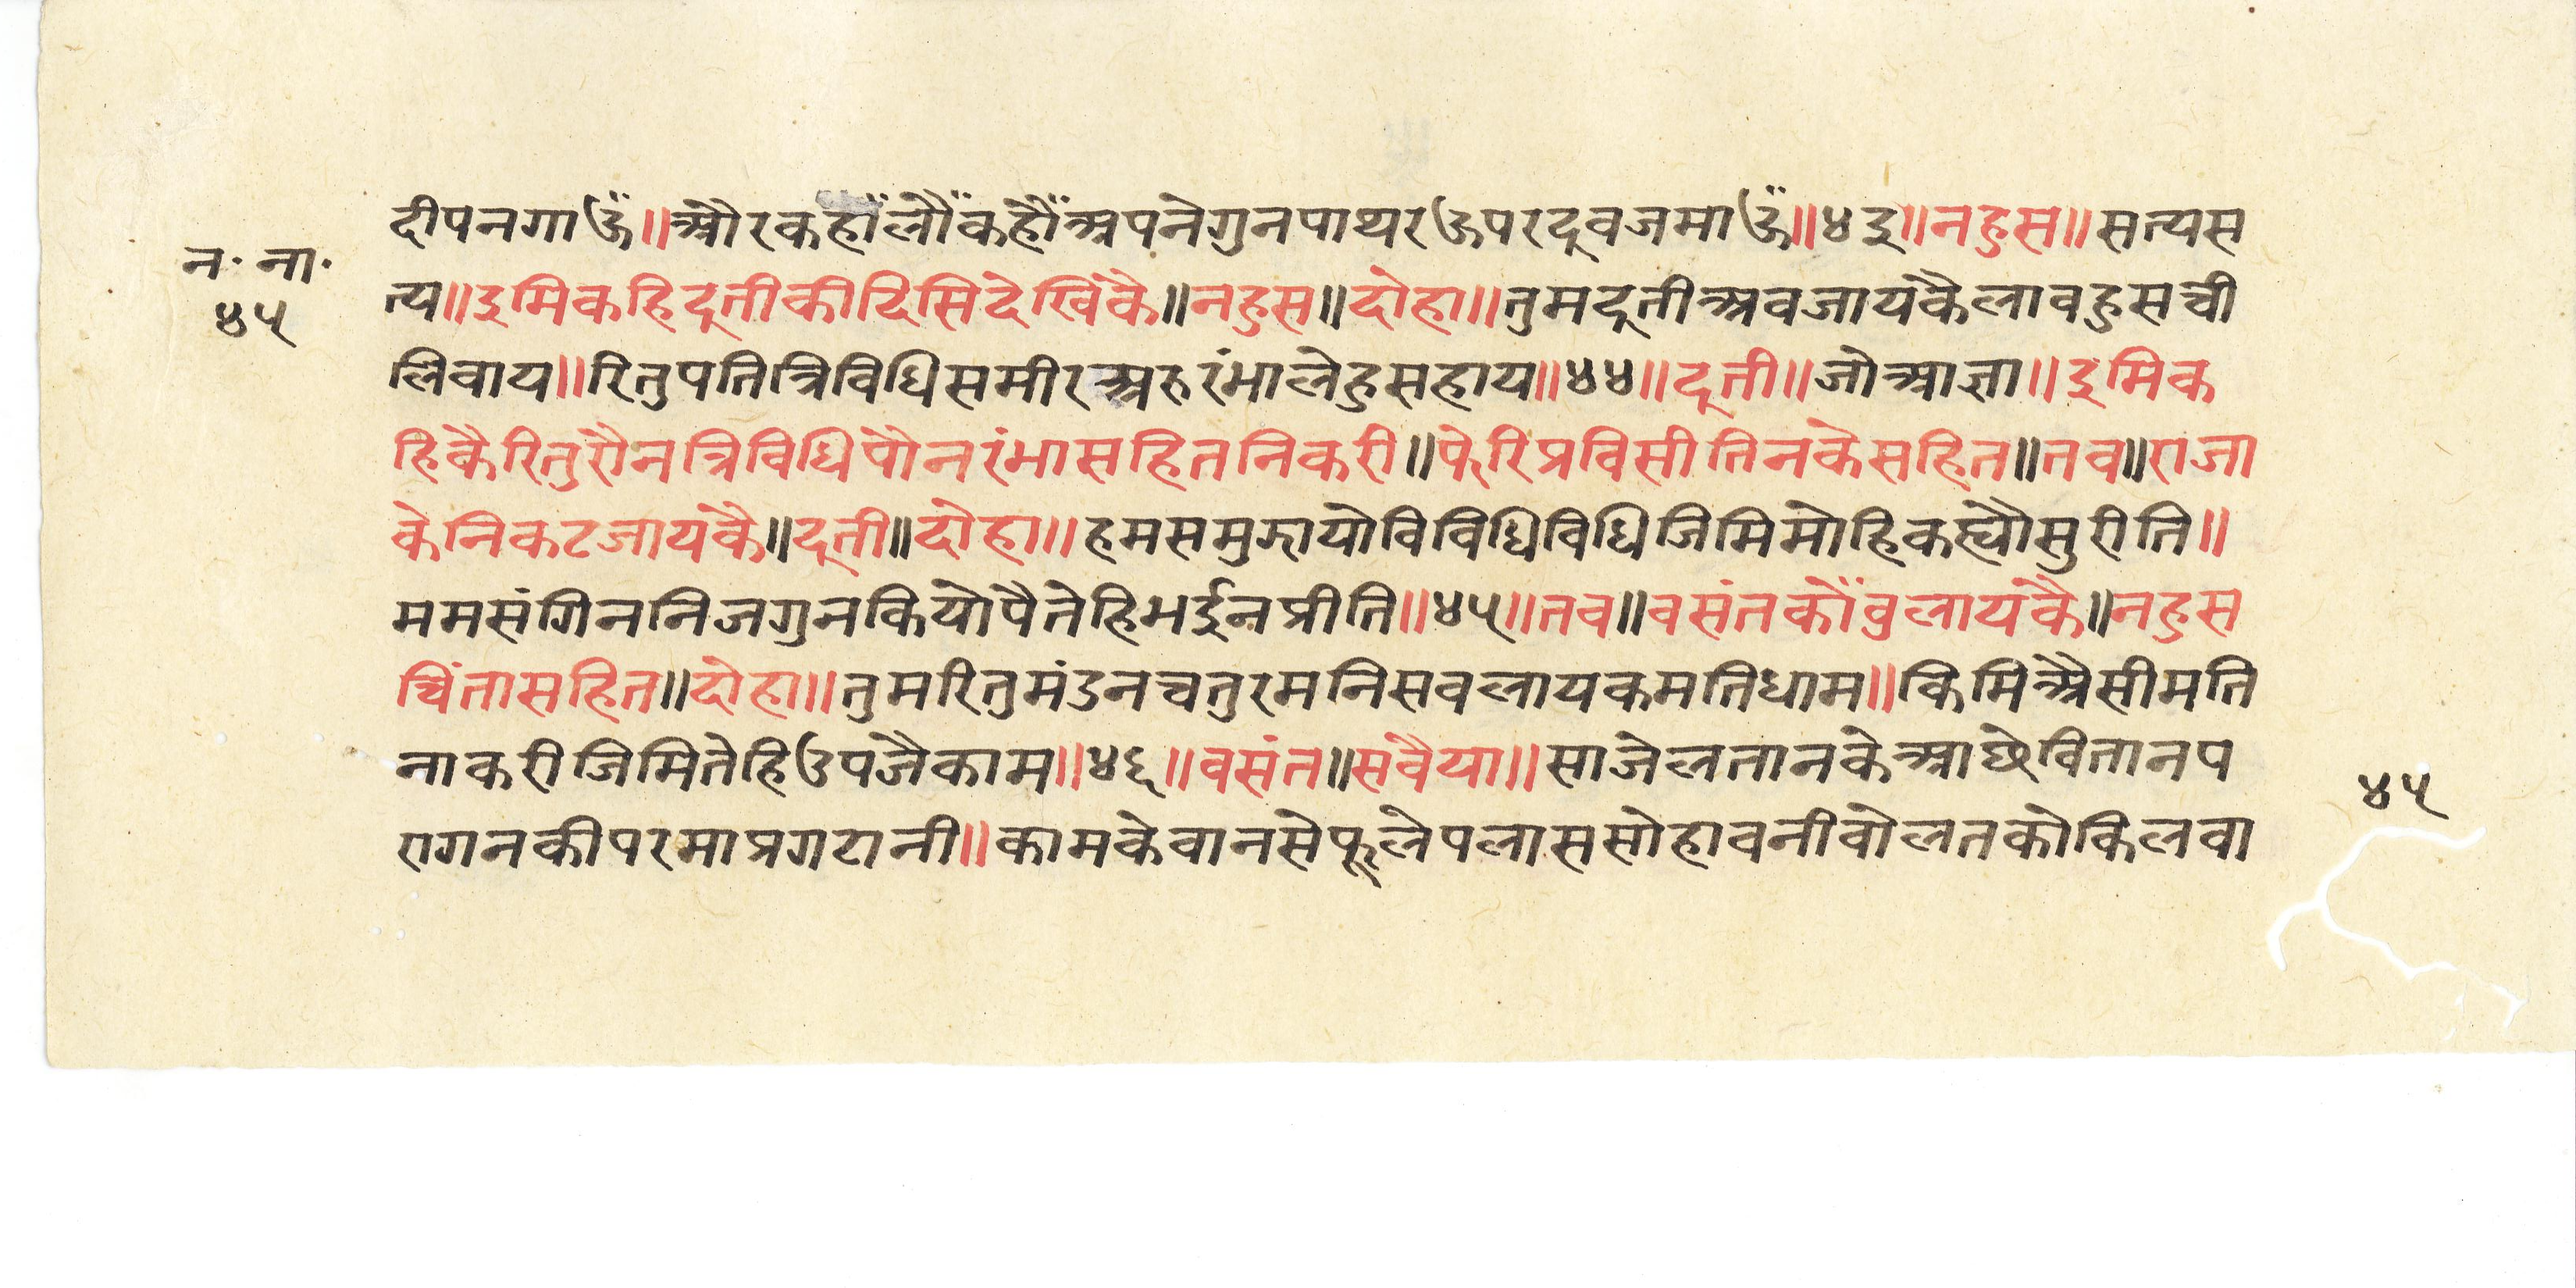 दीपनगाऊँ॥औरकहाँलौँकहौँअपनेगुनपाथरऊपरदूवजमाऊँ॥४३॥नहुस॥सत्यस
न॰ ना॰
४५
त्य॥इमिकहिदूतीकीदिसिदेखिंकै॥नहुस॥दोहा॥तुमदूतीअवजायकैलावहुसची
लिवाय॥रितुपतित्रिविधिसमीरअरुरंभालेहुसहाय॥४४॥दूती॥जोआज्ञा॥इमिक
हिकैरितुरौनत्रिविधिपौनरंभासहितनिकरी॥फेरिप्रविसीतिनकेसहित॥तव॥राजा
केनिकटजायकै॥दूती॥दोहा॥हमसमुझायोविविधिविधिजिमिमोहिकह्यौसुरीति॥
ममसंगिननिजगुनकियोपैतेहिभईनप्रीति॥४५॥तव॥वसंतकौँवुलायकै॥नहुस
चिंतासहित॥दोहा॥तुमरितुमंडनचतुरमनिसवलायकमतिधाम॥किमिऐसीमति
नाकरीजिमितेहिउपजैकाम॥४६॥वसंत॥सवैया॥साजेलतानकेआछेवितानप
रागनकीपरमाप्रगटानी॥कामकेवानसेफूलेपलाससोहावनीवोलतकोकिलवा
४५